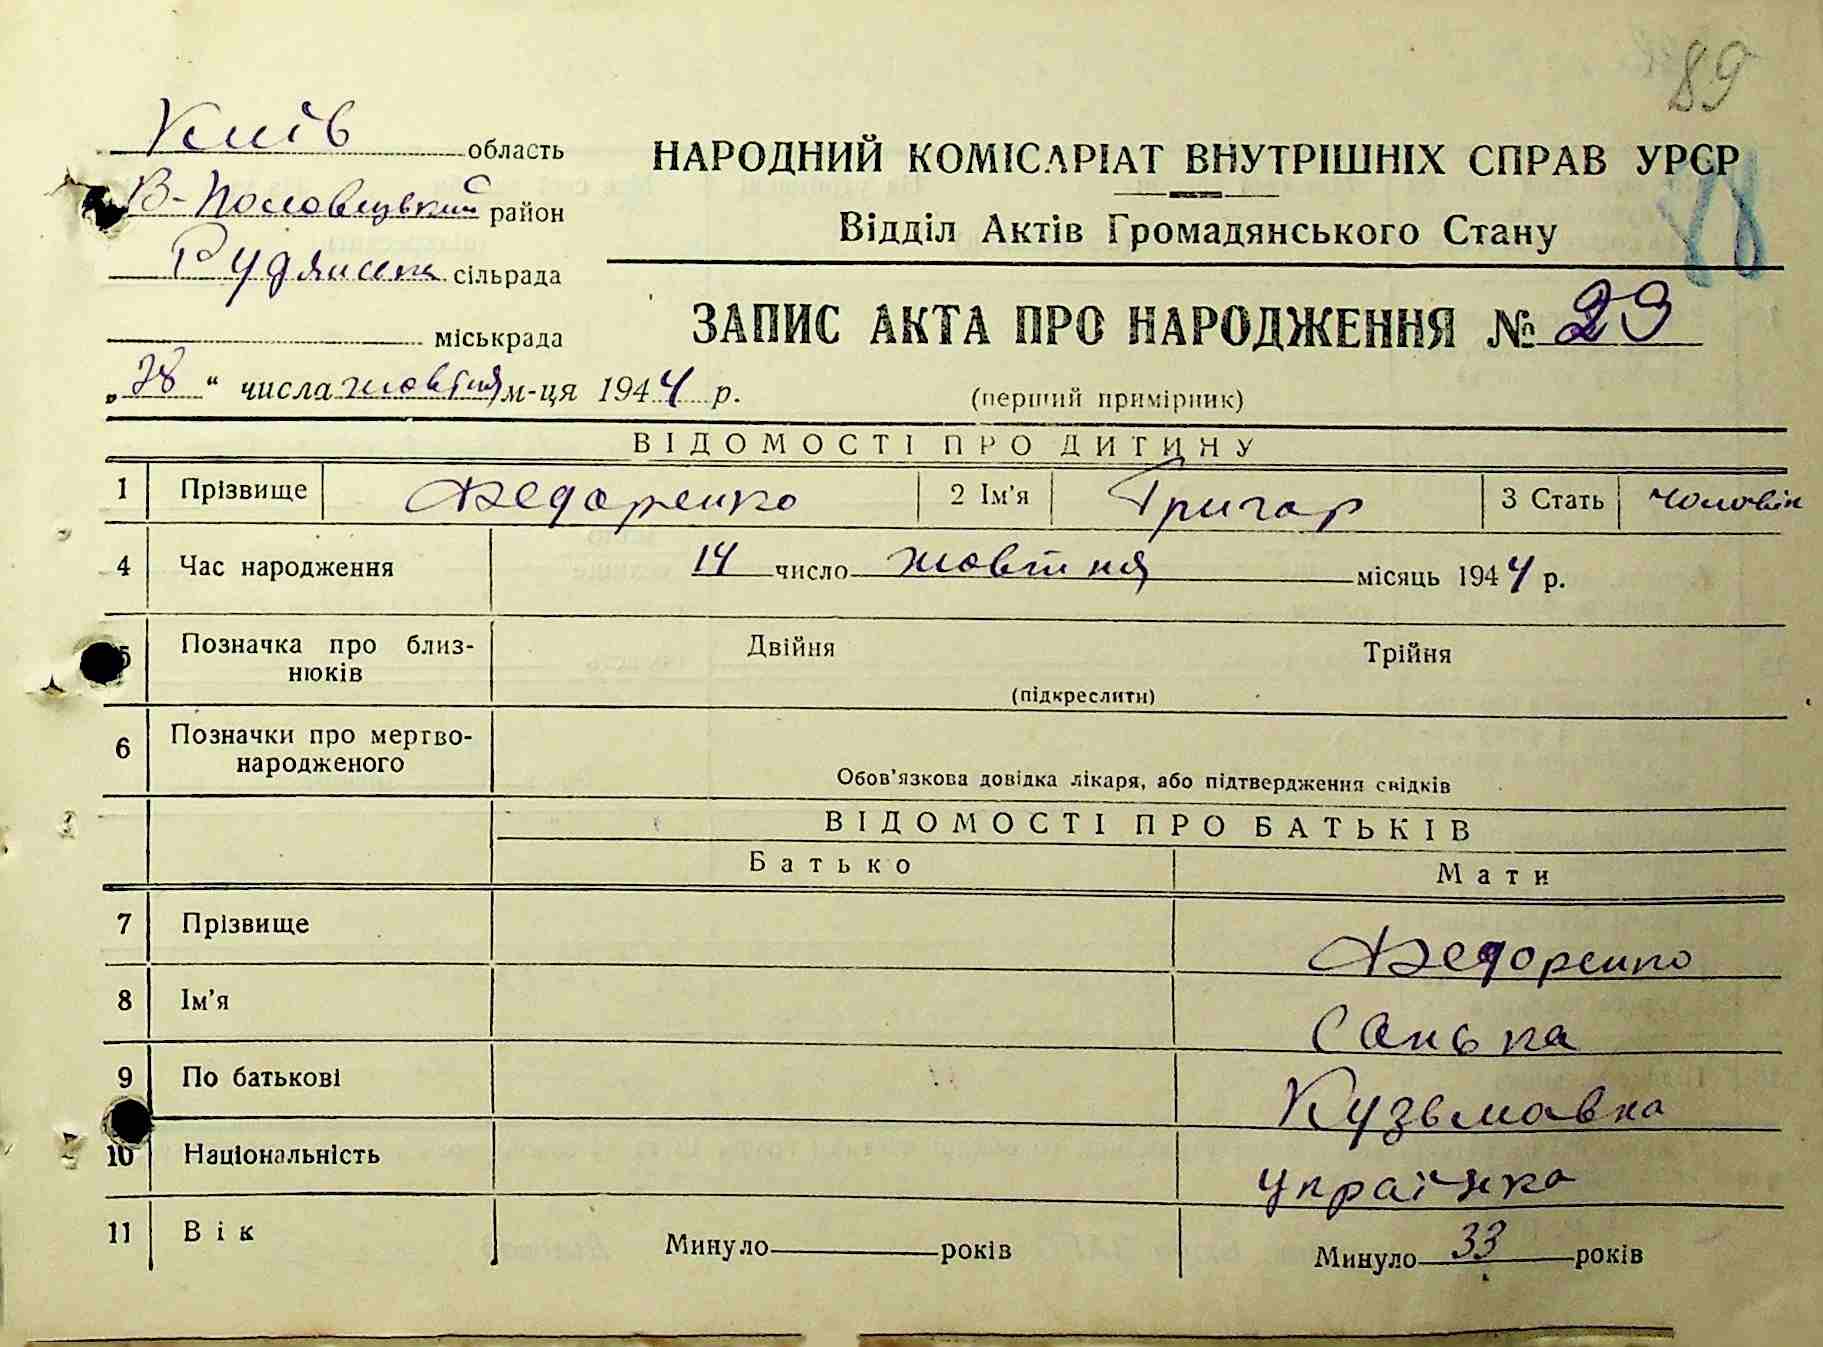 89
Київ область
НАРОДНИЙ КОМІСАРІАТ ВНУТРІШНІХ СПРАВ УРЄР
В-Половецький район
88
Відділ Актів Громадянського Стану
Рудянська сільрада
ЗАПИС АКТА ПРО НАРОДЖЕННЯ № 29
міськрада
„28“ числа жовтня м-ця 1944 р.
(перший примірник)
ВІДОМОСТІ ПРО ДИТИНУ
1 Прізвище Федоренко 2 Ім'я Григор 3 Стать чоловік
4 Час народження 14 число жовтня місяць 1944 р.
5 Позначка про близ-
нюків
Двійня Трійня
(підкреслити)
6 Позначки про мертво-
народженого
Обов'язкова довідка лікаря, або підтвердження свідків
ВІДОМОСТІ ПРО БАТЬКІВ
Батько Мати
7 Прізвище Федоренко
8 Ім'я Санька
9 По батькові Кузьмовна
10 Національність українка
11 Вік Минуло років Минуло 33 років